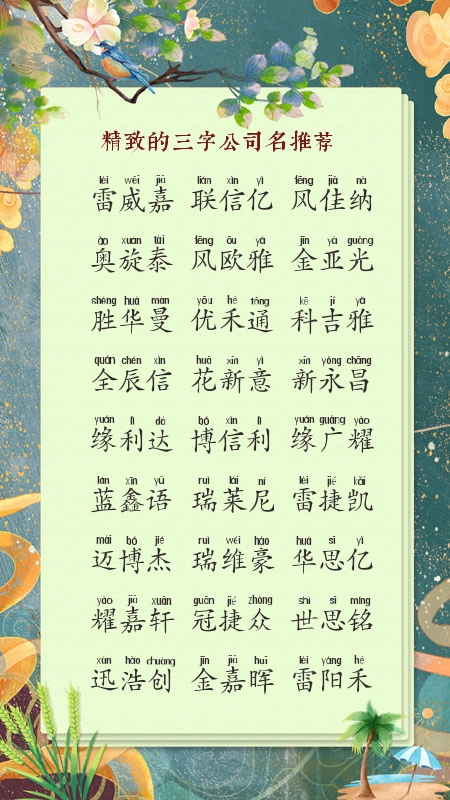 精致的三字公司名推荐
léi wēi jiā lián xìn yì fēng jiā nà
雷威嘉 联信亿 风佳纳
ào xuán tài fēng ōu yǎ jīn yà guāng
奥旋泰 风欧雅 金亚光
shèng huá màn yōu hé tōng kē jí yǎ
胜华曼 优禾通 科吉雅
quán chén xìn huā xīn yì xīn yǒng chāng
全辰信 花新意 新永昌
yuán lì dá bó xìn lì yuán guǎng yào
缘利达 博信利 缘广耀
lán xīn yǔ ruì lái ní léi jié kǎi
蓝鑫语 瑞莱尼 雷捷凯
mài bó jié ruì wéi háo huá sī yì
迈博杰 瑞维豪 华思亿
yào jiā xuān guān jié zhòng shì sī míng
耀嘉轩 冠捷众 世思铭
xùn hào chuàng jīn jiā huī léi yáng hé
迅浩创 金嘉晖 雷阳禾